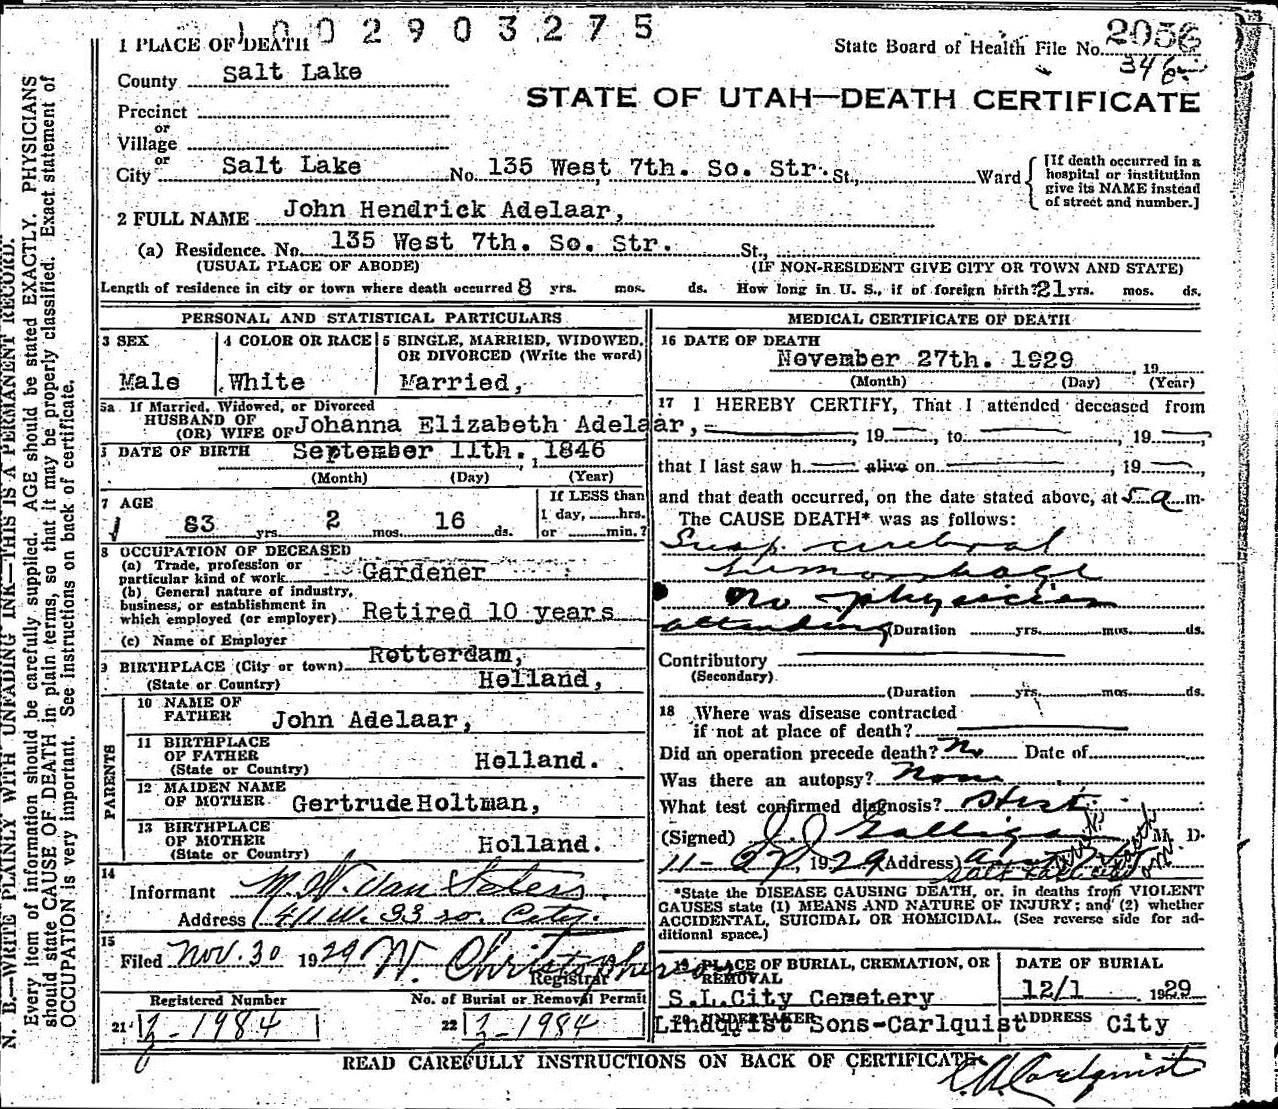 1002903275
1 PLACE OF DEATH
State Board of Health File No. 2056
346
County Salt Lake
STATE OF UTAH—DEATH CERTIFICATE
Precinct
or
Village
or
City Salt Lake No. 135 West 7th. So. Str. St., Ward
[If death occurred in a hospital or institution give its NAME instead of street and number.]
2 FULL NAME John Hendrick Adelaar,
(a) Residence. No. 135 West 7th. So. Str. St.,
(USUAL PLACE OF ABODE) (IF NON-RESIDENT GIVE CITY OR TOWN AND STATE)
Length of residence in city or town where death occurred 8 yrs. mos. ds. How long in U. S., if of foreign birth? 21 yrs. mos. ds.
PERSONAL AND STATISTICAL PARTICULARS
3 SEX
Male
4 COLOR OR RACE
White
5 SINGLE, MARRIED, WIDOWED, OR DIVORCED (Write the word)
Married,
5a If Married, Widowed, or Divorced
HUSBAND OF
(OR) WIFE OF Johanna Elizabeth Adelaar,
6 DATE OF BIRTH September 11th. 1846
(Month) (Day) (Year)
7 AGE
83 yrs. 2 mos. 16 ds.
If LESS than
1 day, hrs.
or min.?
8 OCCUPATION OF DECEASED
(a) Trade, profession or
particular kind of work Gardener
(b) General nature of industry,
business, or establishment in
which employed (or employer) Retired 10 years
(c) Name of Employer
9 BIRTHPLACE (City or town) Rotterdam,
(State or Country) Holland,
PARENTS
10 NAME OF
FATHER John Adelaar,
11 BIRTHPLACE
OF FATHER
(State or Country) Holland.
12 MAIDEN NAME
OF MOTHER Gertrude Holtman,
13 BIRTHPLACE
OF MOTHER
(State or Country) Holland.
14
Informant M. W. Van Seters
Address 411 W. 33 So. City.
15
Filed Nov. 30 1929 W. Christopherson
Registrar
Registered Number
21 1984
No. of Burial or Removal Permit
22 1984
MEDICAL CERTIFICATE OF DEATH
16 DATE OF DEATH
November 27th. 1929, 19
(Month) (Day) (Year)
17 I HEREBY CERTIFY, That I attended deceased from
, 19 , to , 19 ,
that I last saw h alive on , 19 ,
and that death occurred, on the date stated above, at 5 a m.
The CAUSE DEATH* was as follows:
Susp. cerebral
hemorrhage
No physician
attending (Duration yrs. mos. ds.
Contributory
(Secondary)
(Duration yrs. mos. ds.
18 Where was disease contracted
if not at place of death?
Did an operation precede death? No Date of
Was there an autopsy? None
What test confirmed diagnosis? Hist.
(Signed) J. J. Galligan M. D.
11-27, 1929 (Address)
*State the DISEASE CAUSING DEATH, or, in deaths from VIOLENT
CAUSES state (1) MEANS AND NATURE OF INJURY; and (2) whether
ACCIDENTAL, SUICIDAL OR HOMICIDAL. (See reverse side for ad-
ditional space.)
19 PLACE OF BURIAL, CREMATION, OR
REMOVAL
S.L.City Cemetery
DATE OF BURIAL
12/1 1929
20 UNDERTAKER
Lindquist Sons-Carlquist
ADDRESS City
READ CAREFULLY INSTRUCTIONS ON BACK OF CERTIFICATE.
Carlquist
N. B.—WRITE PLAINLY WITH UNFADING INK—THIS IS A PERMANENT RECORD.
Every item of information should be carefully supplied. AGE should be stated EXACTLY. PHYSICIANS
should state CAUSE OF DEATH in plain terms, so that it may be properly classified. Exact statement of
OCCUPATION is very important. See instructions on back of certificate.